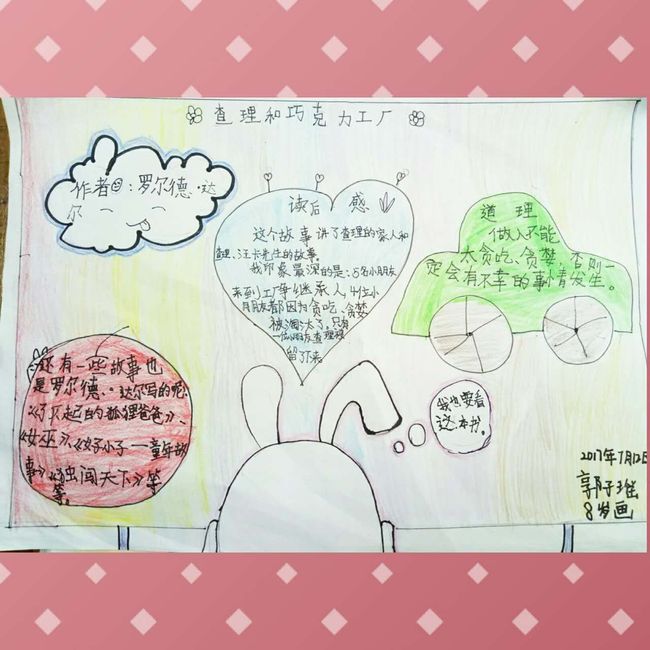 查理和巧克力工厂
作者：罗尔德·达
尔
读后感
这个故事讲了查理的家人和
查理、汪卡先生的故事。
我印象最深的是：5名小朋友
来到工厂争继承人，4位小
月朋友都因为贪吃、贪婪
被淘汰了，只有
一位小朋友查理被
留了下来
道理
做人不能
太贪吃、贪婪，否则一
定会有不幸的事情发生。
还有一些故事也
是罗尔德·达尔写的呢：
《了不起的狐狸爸爸》、
《女巫》、《好小子——童年故
事》《独闯天下》等
等。
我也要看
这本书。
2017年7月12日
郭子瑶
8岁画